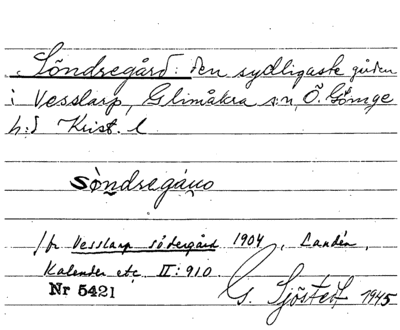 Söndregård: den sydligaste gården
i Vesslarp, Glimåkra sn, Ö. Göinge
h:d Krist. l
söndregáɳo
Jfr Vesslarp södergård 1904, Landén,
Kalender etc. II:910.
Nr 5421
G. Sjöstedt 1945